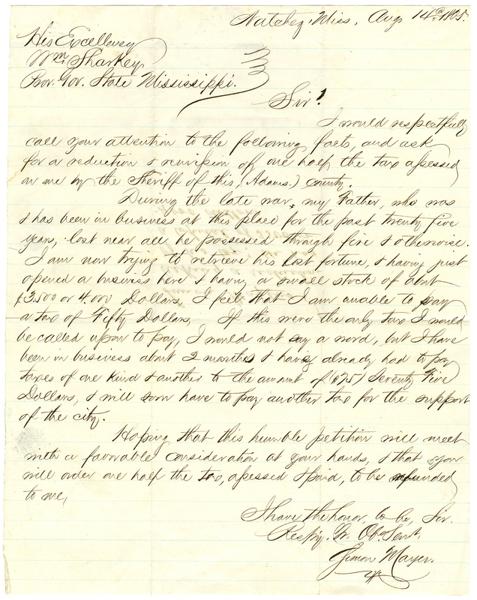 Natchez, Miss, Aug 14th 1865.
His Excellency
Wm. Sharkey,
Prov. Gov. State Mississippi.
Sir!
I would respectfully
call your attention to the following facts, and ask
for a reduction & revision of one half the tax assessed
on me by the Sheriff of this, (Adams.) County.
During the late war, my Father, who was
& has been in business at this place for the past twenty five
years, lost near all he possessed through fire & otherwise.
I am now trying to retrieve his lost fortune, & having just
opened a business here & having a small stock of abut
$3,500 or 4,000 Dollars, I feel that I am unable to pay
a tax of Fifty Dollars. If this were the only tax I would
be called upon to pay, I would not say a word, but I have
been in business about 2 months & have already had to pay
taxes of one kind & another to the amount of ($75) Seventy Five
Dollars, & will soon have to pay another Tax for the support
of the city.
Hoping that this humble petition will meet
with a favorable consideration at your hands, & that you
will order one half the tax, assessed & paid, to be refunded
to me,
I have the honor to be, Sir.
Respy. Yr. Obt. Servt.
Simon Mayer.